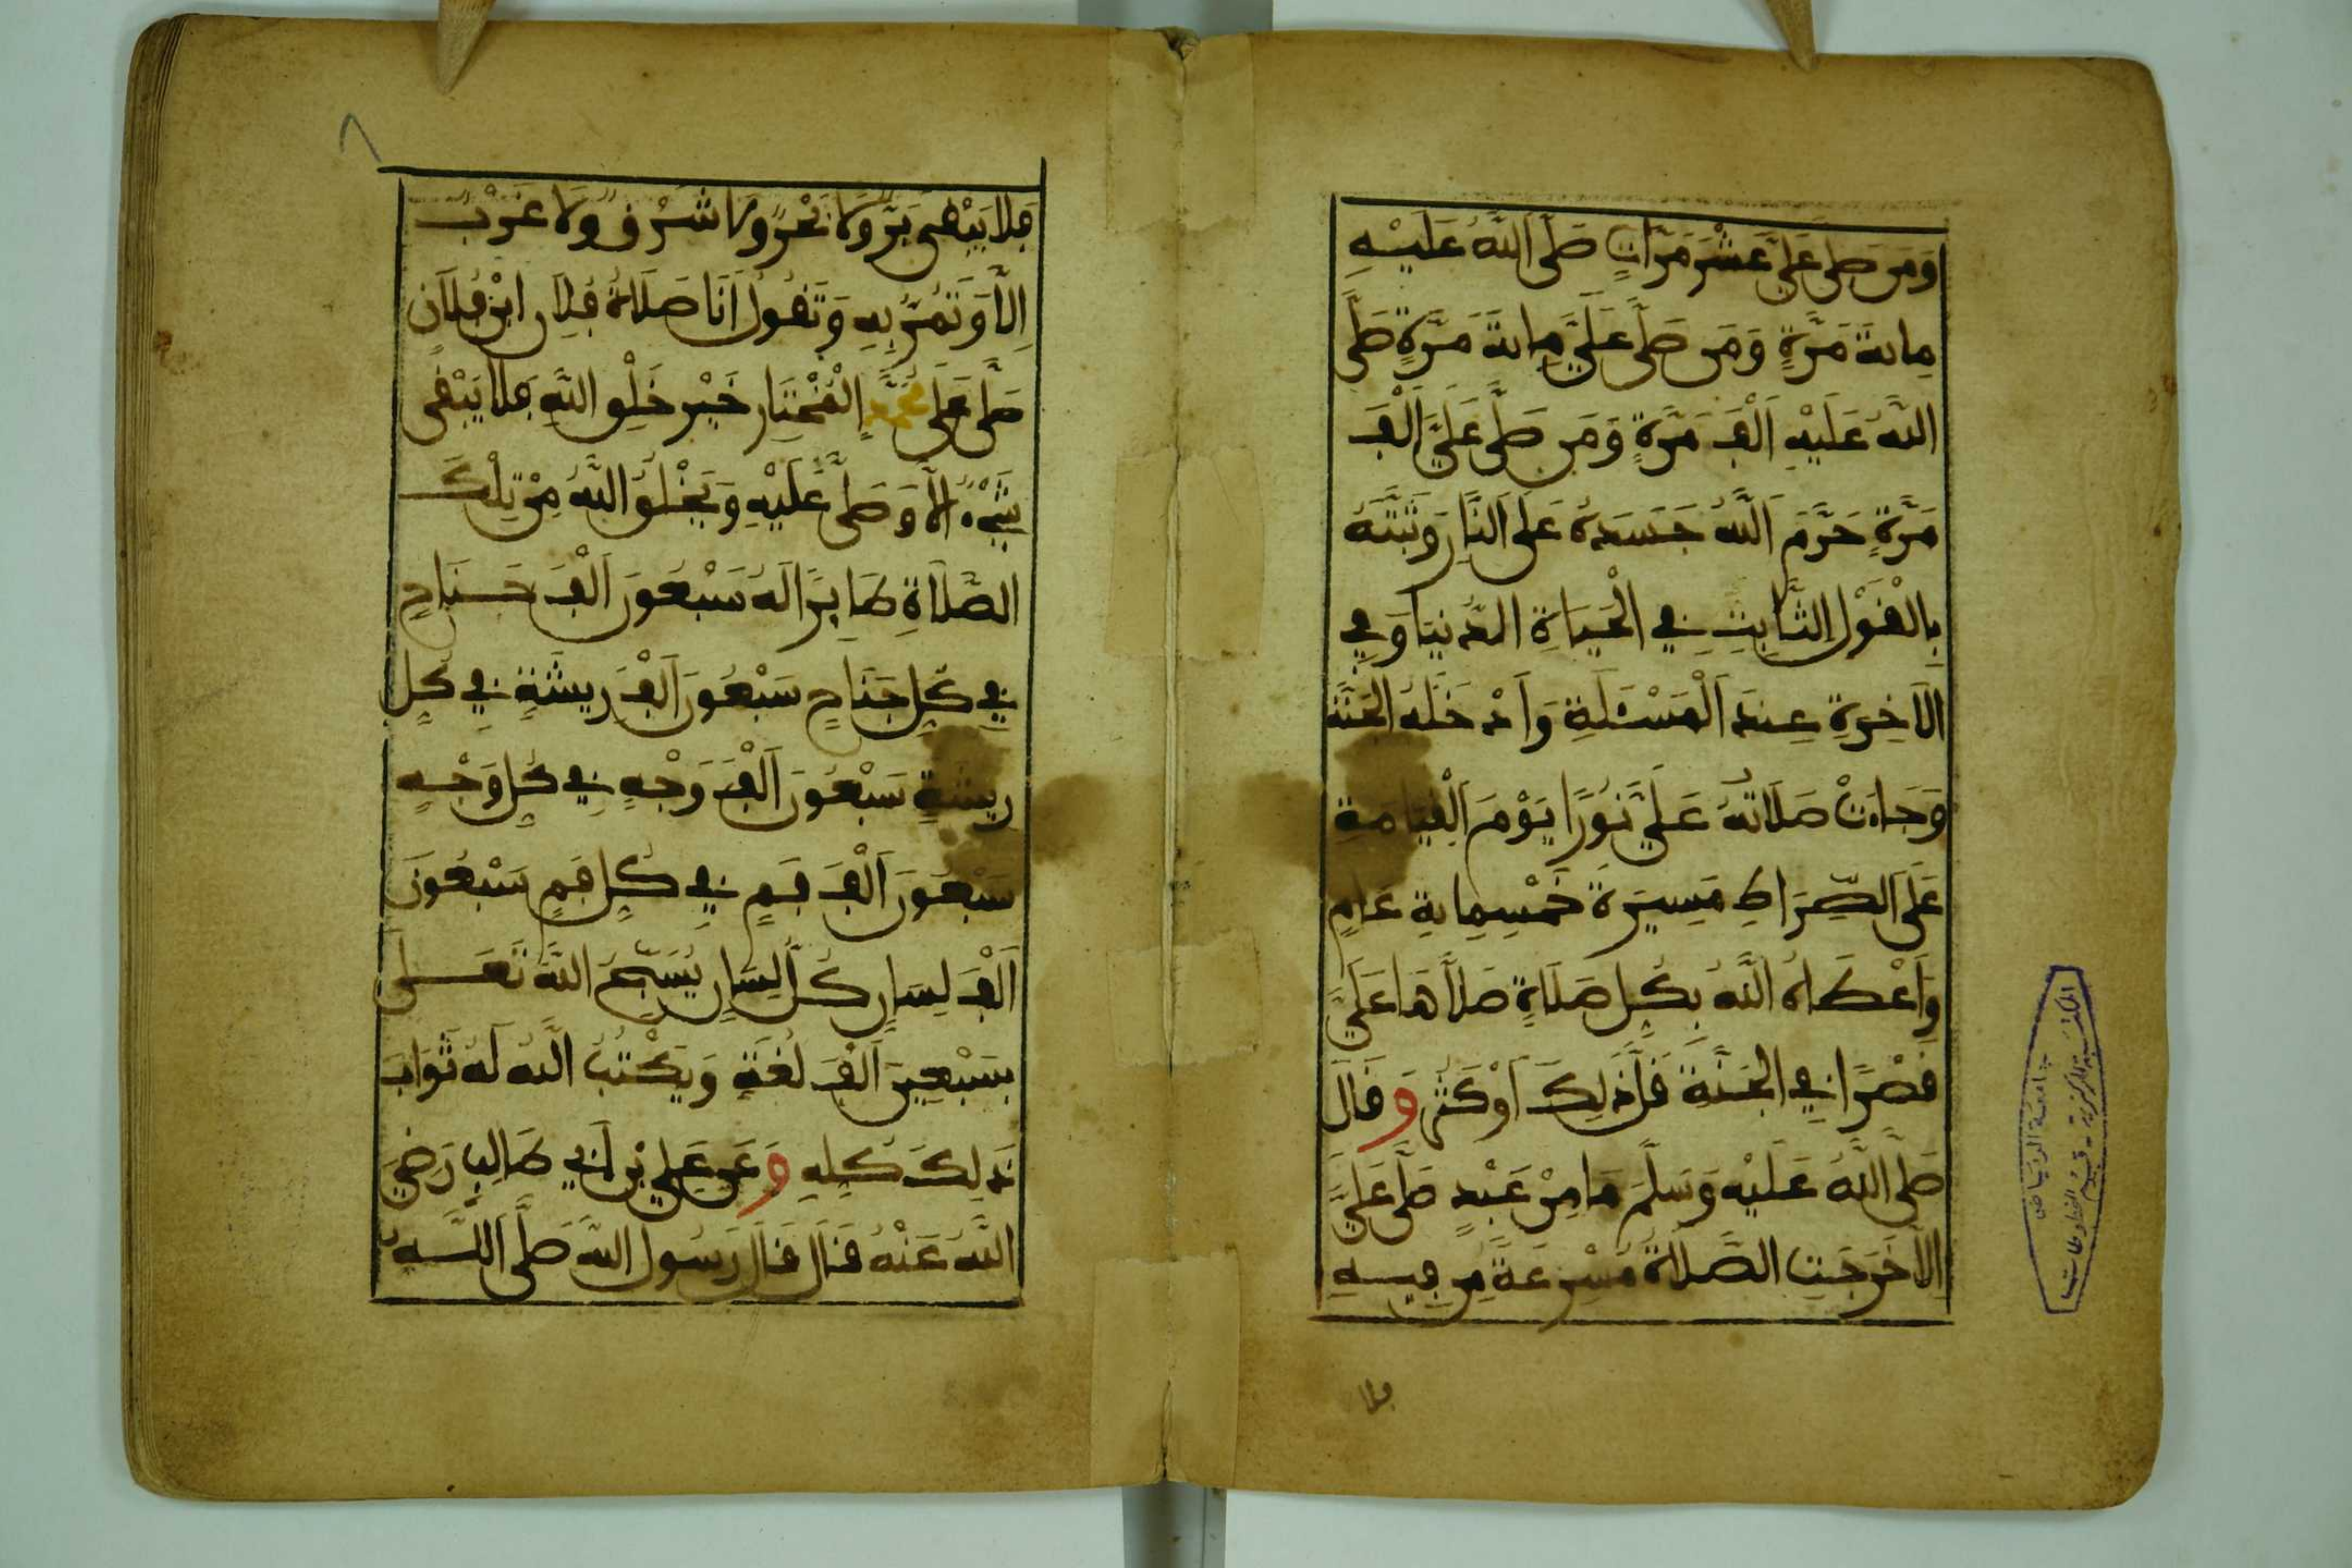 وَمَن صَلَّى عَلَيَّ عَشْرَ مَرَّاتٍ صَلَّى اللَّهُ عَلَيْهِ
مِائَةَ مَرَّةٍ وَمَن صَلَّى عَلَيَّ مِائَةَ مَرَّةٍ صَلَّى
اللَّهُ عَلَيْهِ أَلْفَ مَرَّةٍ وَمَن صَلَّى عَلَيَّ أَلْفَ
مَرَّةٍ حَرَّمَ اللَّهُ جَسَدَهُ عَلَى النَّارِ وَثَبَّتَهُ
بِالْقَوْلِ الثَّابِتِ فِي الْحَيَاةِ الدُّنْيَا وَفِي
الْآخِرَةِ عِندَ الْمَسْئَلَةِ وَأَدْخَلَهُ الْجَنَّةَ
وَجَاءَتْ صَلَاتُهُ عَلَيَّ نُورًا يَوْمَ الْقِيَامَةِ
عَلَى الصِّرَاطِ مَسِيرَةَ خَمْسِمِائَةِ عَامٍ
وَأَعْطَاهُ اللَّهُ بِكُلِّ صَلَاةٍ صَلَّاهَا عَلَيَّ
قَصْرًا فِي الْجَنَّةِ قَلَّ ذَلِكَ أَوْ كَثُرَ وَقَالَ
صَلَّى اللَّهُ عَلَيْهِ وَسَلَّمَ مَا مِنْ عَبْدٍ صَلَّى عَلَيَّ
إِلَّا خَرَجَتِ الصَّلَاةُ مُسْرِعَةً مِن فِيهِ
فلا
٨
فَلَا يَبْقَى بَرٌّ وَلَا بَحْرٌ وَلَا شَرْقٌ وَلَا غَرْبٌ
إِلَّا وَتَمُرُّ بِهِ وَتَقُولُ أَنَا صَلَاةُ فُلَانِ ابْنِ فُلَانٍ
صَلَّى عَلَى مُحَمَّدٍ الْمُخْتَارِ خَيْرِ خَلْقِ اللَّهِ فَلَا يَبْقَى
شَيْءٌ إِلَّا وَصَلَّى عَلَيْهِ وَيَخْلُقُ اللَّهُ مِنْ تِلْكَ
الصَّلَاةِ طَائِرًا لَهُ سَبْعُونَ أَلْفَ جَنَاحٍ
فِي كُلِّ جَنَاحٍ سَبْعُونَ أَلْفَ رِيشَةٍ فِي كُلِّ
رِيشَةٍ سَبْعُونَ أَلْفَ وَجْهٍ فِي كُلِّ وَجْهٍ
سَبْعُونَ أَلْفَ فَمٍ فِي كُلِّ فَمٍ سَبْعُونَ
أَلْفَ لِسَانٍ كُلُّ لِسَانٍ يُسَبِّحُ اللَّهَ تَعَلَى
بِسَبْعِينَ أَلْفَ لُغَةٍ وَيَكْتُبُ اللَّهُ لَهُ ثَوَابَ
ذَلِكَ كُلِّهِ وَعَن عَلِيِّ بْنِ أَبِي طَالِبٍ رَضِيَ
اللَّهُ عَنْهُ قَالَ قَالَ رَسُولُ اللَّهِ صَلَّى اللَّهُ
المكتبة المركزية - قسم المخطوطات
جامعة الرياض